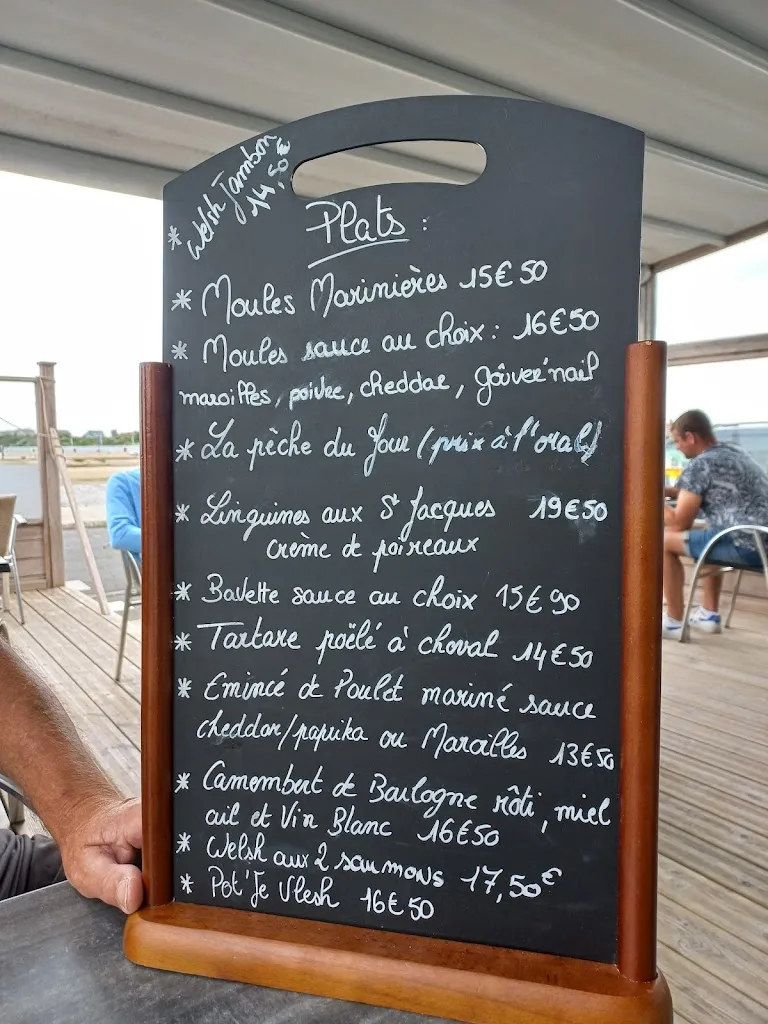 * Welsh Jambon
14,50€
Plats :
* Moules Marinières 15€50
* Moules sauce au choix : 16€50
maroilles, poivre, cheddar, gouver'nail
* La pêche du Jour (prix à l'oral)
* Linguines aux St Jacques 19€50
crème de poireaux
* Bavette sauce au choix 15€90
* Tartare poëlé à choval 14€50
* Emincé de Poulet mariné sauce
cheddar/paprika ou Maroilles 13€50
* Camembert de Boulogne rôti, miel
ail et Vin Blanc 16€50
* Welsh aux 2 saumons 17,50€
* Pot'Je Vlesh 16€50